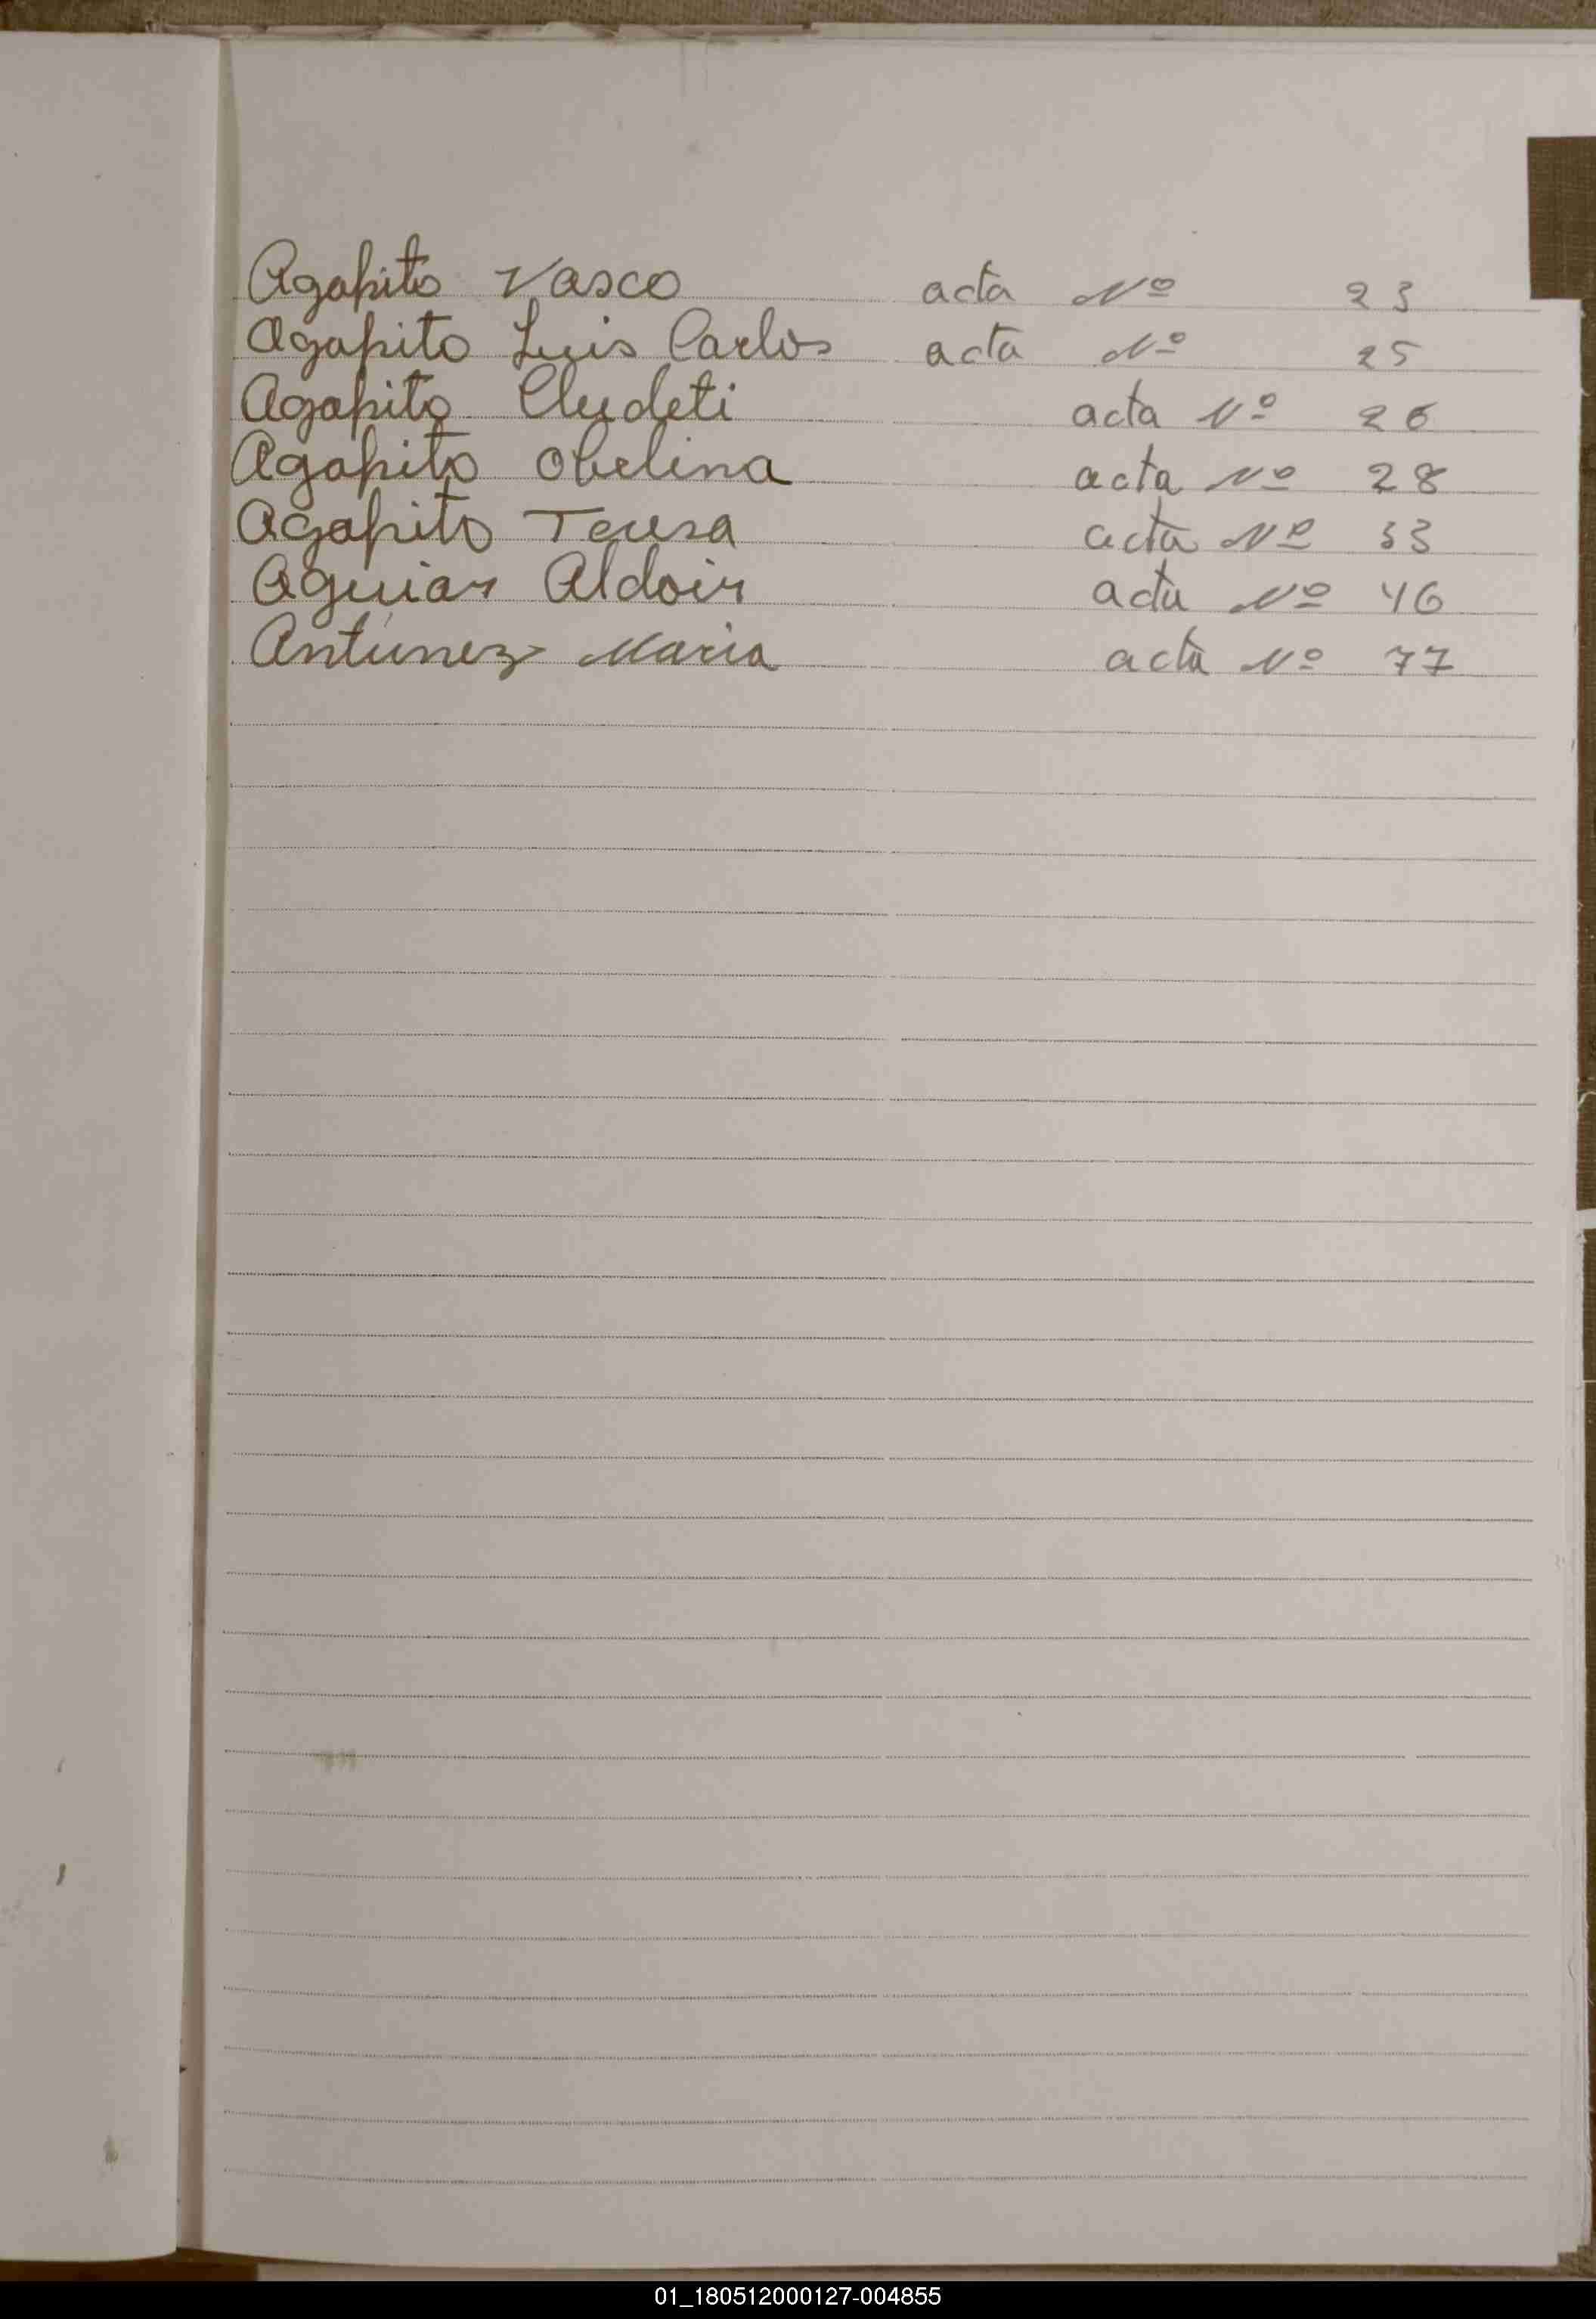 Agapito Vasco acta Nº 23
Agapito Luis Carlos acta Nº 25
Agapito Cludeti acta Nº 26
Agapito Obelina acta Nº 28
Agapito Teresa acta Nº 33
Aguiar Aldoir acta Nº 46
Antúnez Maria acta Nº 77
01_180512000127-004855